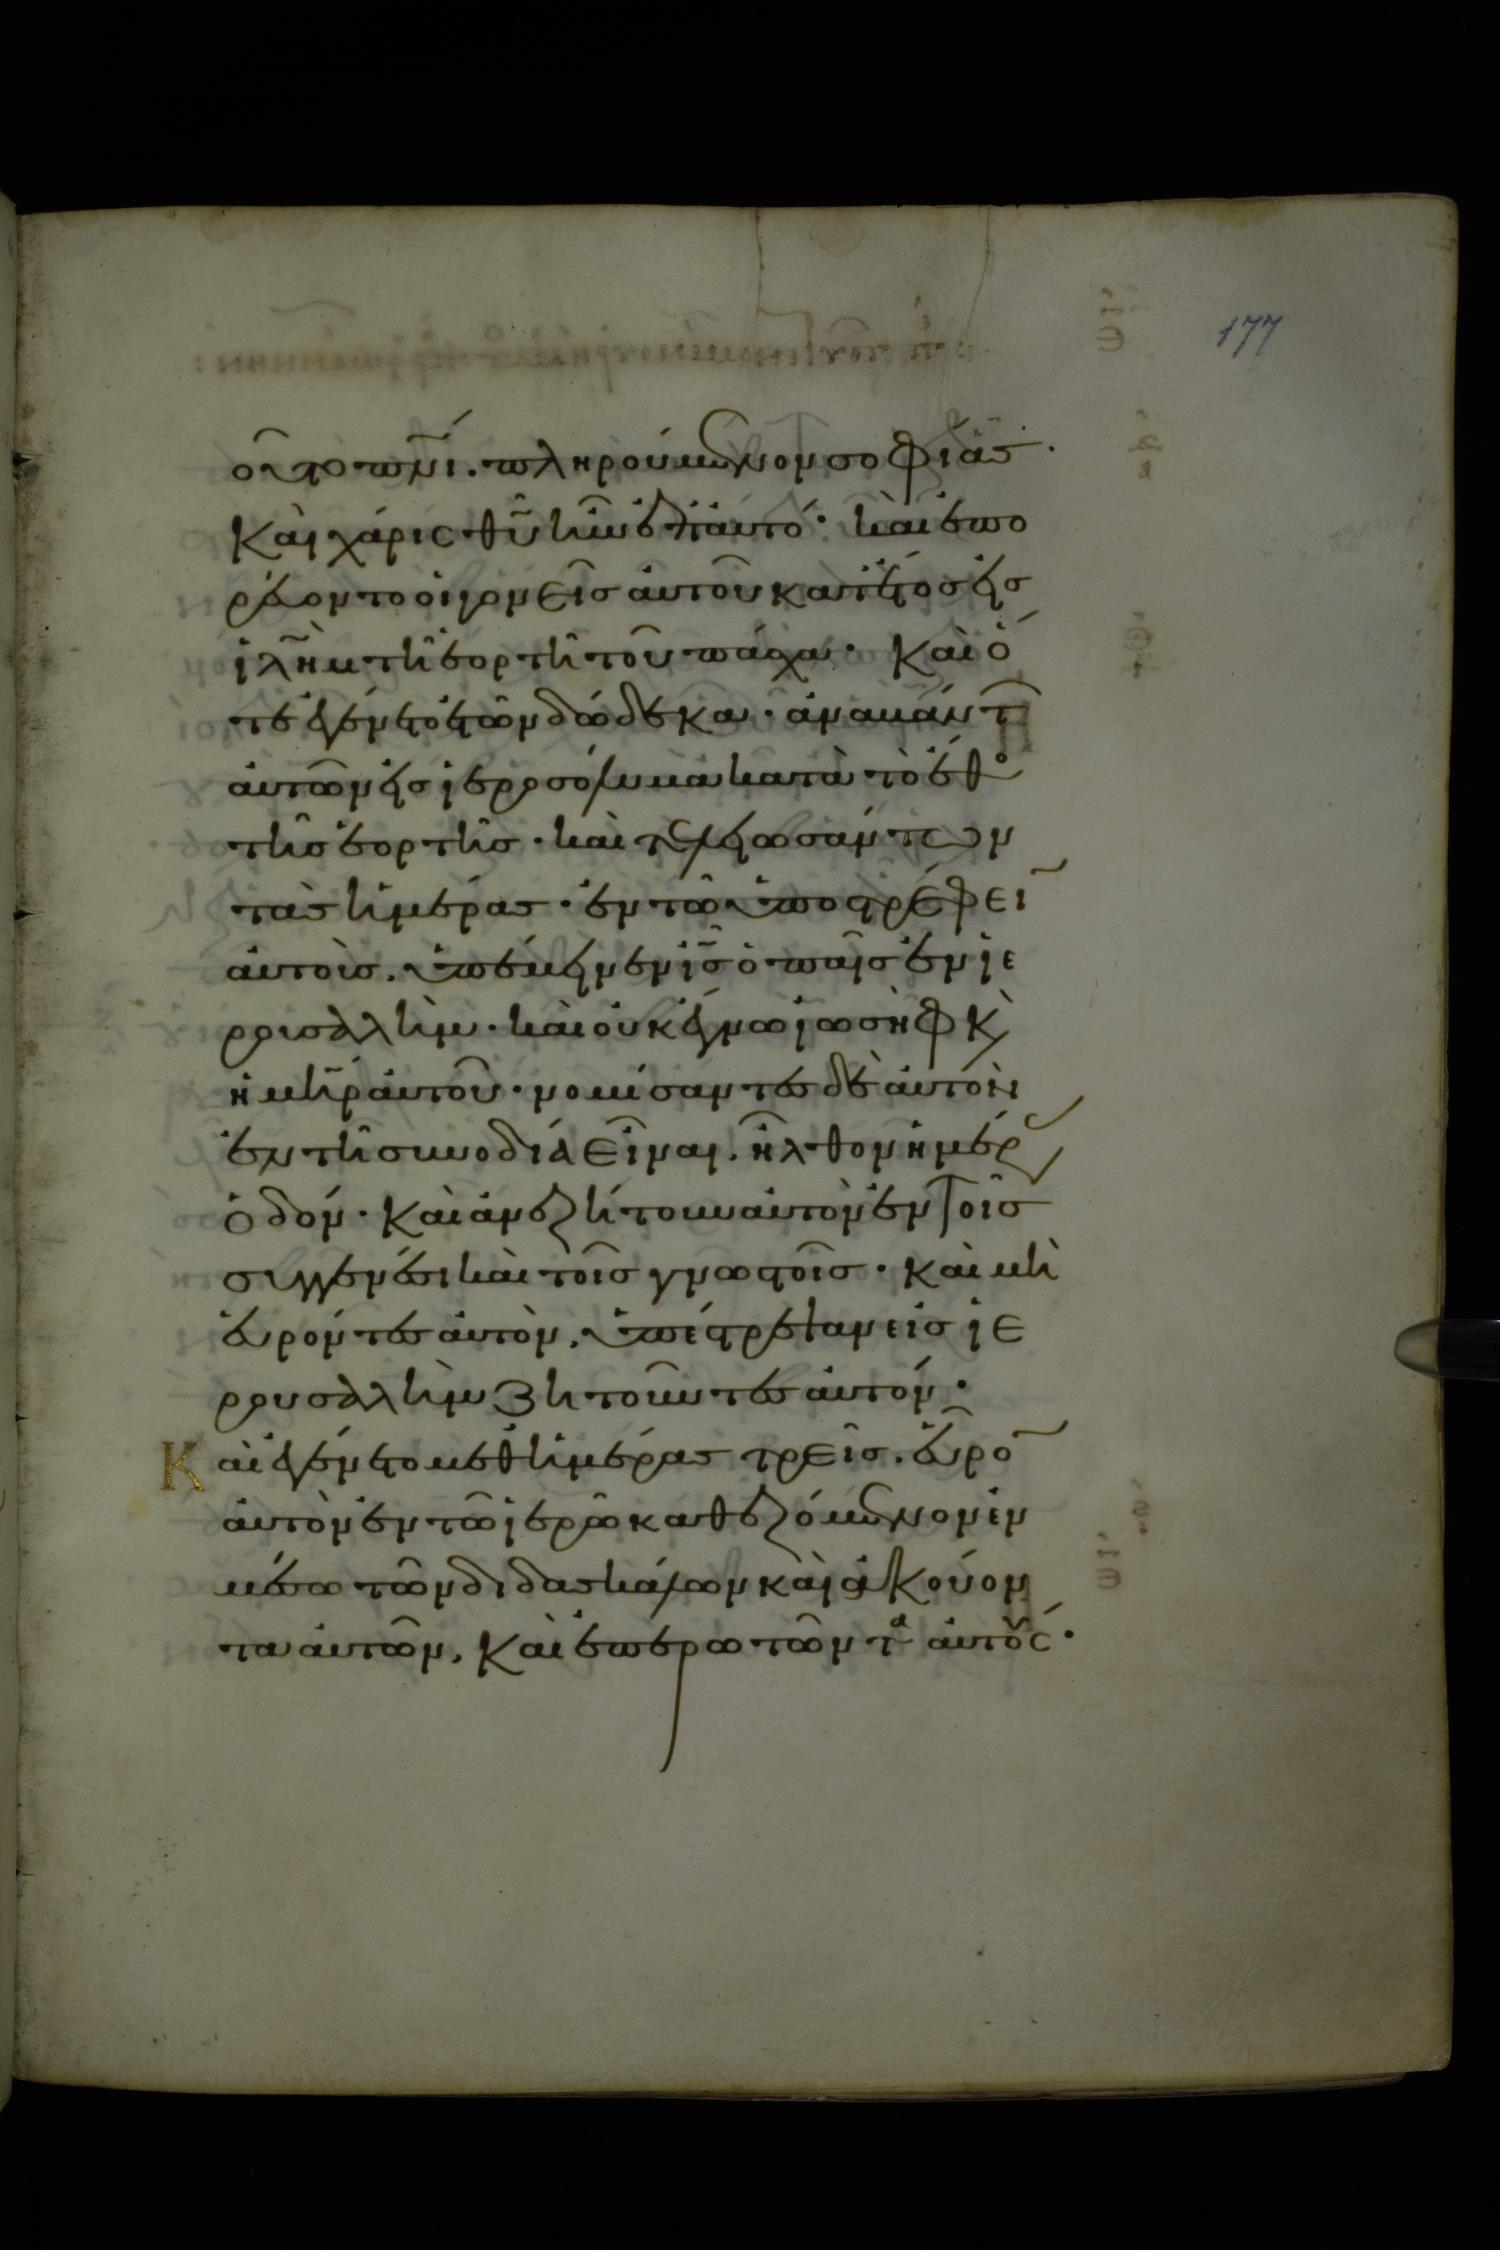 177
οῦτο πνι̅. πληρούμενον σοφίας·
Καὶ χάρις θυ̅ ἦν ἐπ' αὐτό· καὶ ἐπο
ρεύοντο οἱ γονεῖς αὐτοῦ κατ' ἔτος εἰς
ιλη̅μ τῆ ἑορτῆ τοῦ πάσχα. Καὶ ὅ
τε ἐγένετο ἐτῶν δώδεκα· ἀναβάντ
αὐτῶν εἰς ἱεροσόλυμα κατὰ τὸ ἔθο
τῆς ἑορτῆς· καὶ τελειωσάντων
τὰς ἡμέρας· ἐν τῶ ὑποστρέφει
αὐτοὺς. ὑπέμεινεν ις̅ ὁ παῖς ἐν ἱε
ρουσαλὴμ· καὶ οὐκ ἔγνω ἰωσὴφ κ
ἡ μη̅ρ αὐτοῦ· νομίσαντες δὲ αὐτὸν
ἐν τῆ συνοδία εἶναι. ἦλθον ἡμέρ
ὁδόν· Καὶ ἀνεζήτουν αὐτὸν ἐν τοῖς
συγγενέσι καὶ τοῖς γνωστοῖς· καὶ μὴ
εὑρόντες αὐτὸν, ὑπέστρεψαν εἰς ἱε
ρουσαλὴμ ζητοῦντες αὐτόν·
Καὶ ἐγένετο μεθ' ἡμέρας τρεῖς. εὗρο
αὐτὸν ἐν τῶ ἱερῶ καθεζόμενον ἐν
μέσω τῶν διδασκάλων καὶ ἀκούον
τα αὐτῶν, Καὶ ἐπερωτῶντα αὐτούς·